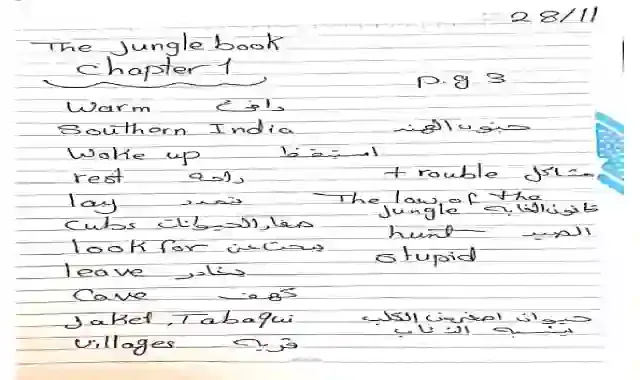 28/11
The Jungle book
Chapter 1
p.g 3
Warm دافئ
Southern India جنوب الهند
Woke up استيقظ
rest راحة
trouble مشاكل
lay تمدد
The law of the
Jungle قانون الغابه
Cubs صغار الحيوانات
hunt الصيد
look for يبحث عن
stupid
leave يغادر
Cave كهف
Jakel, Tabaqui حيوان اصغر من الكلب
يشبه الذئاب
villages قريه